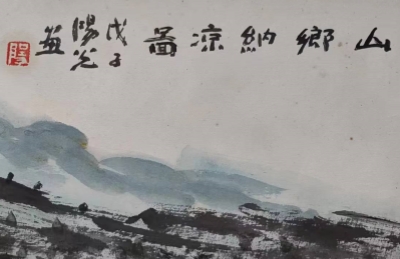 山鄉納涼圖
戊子
陽光畫